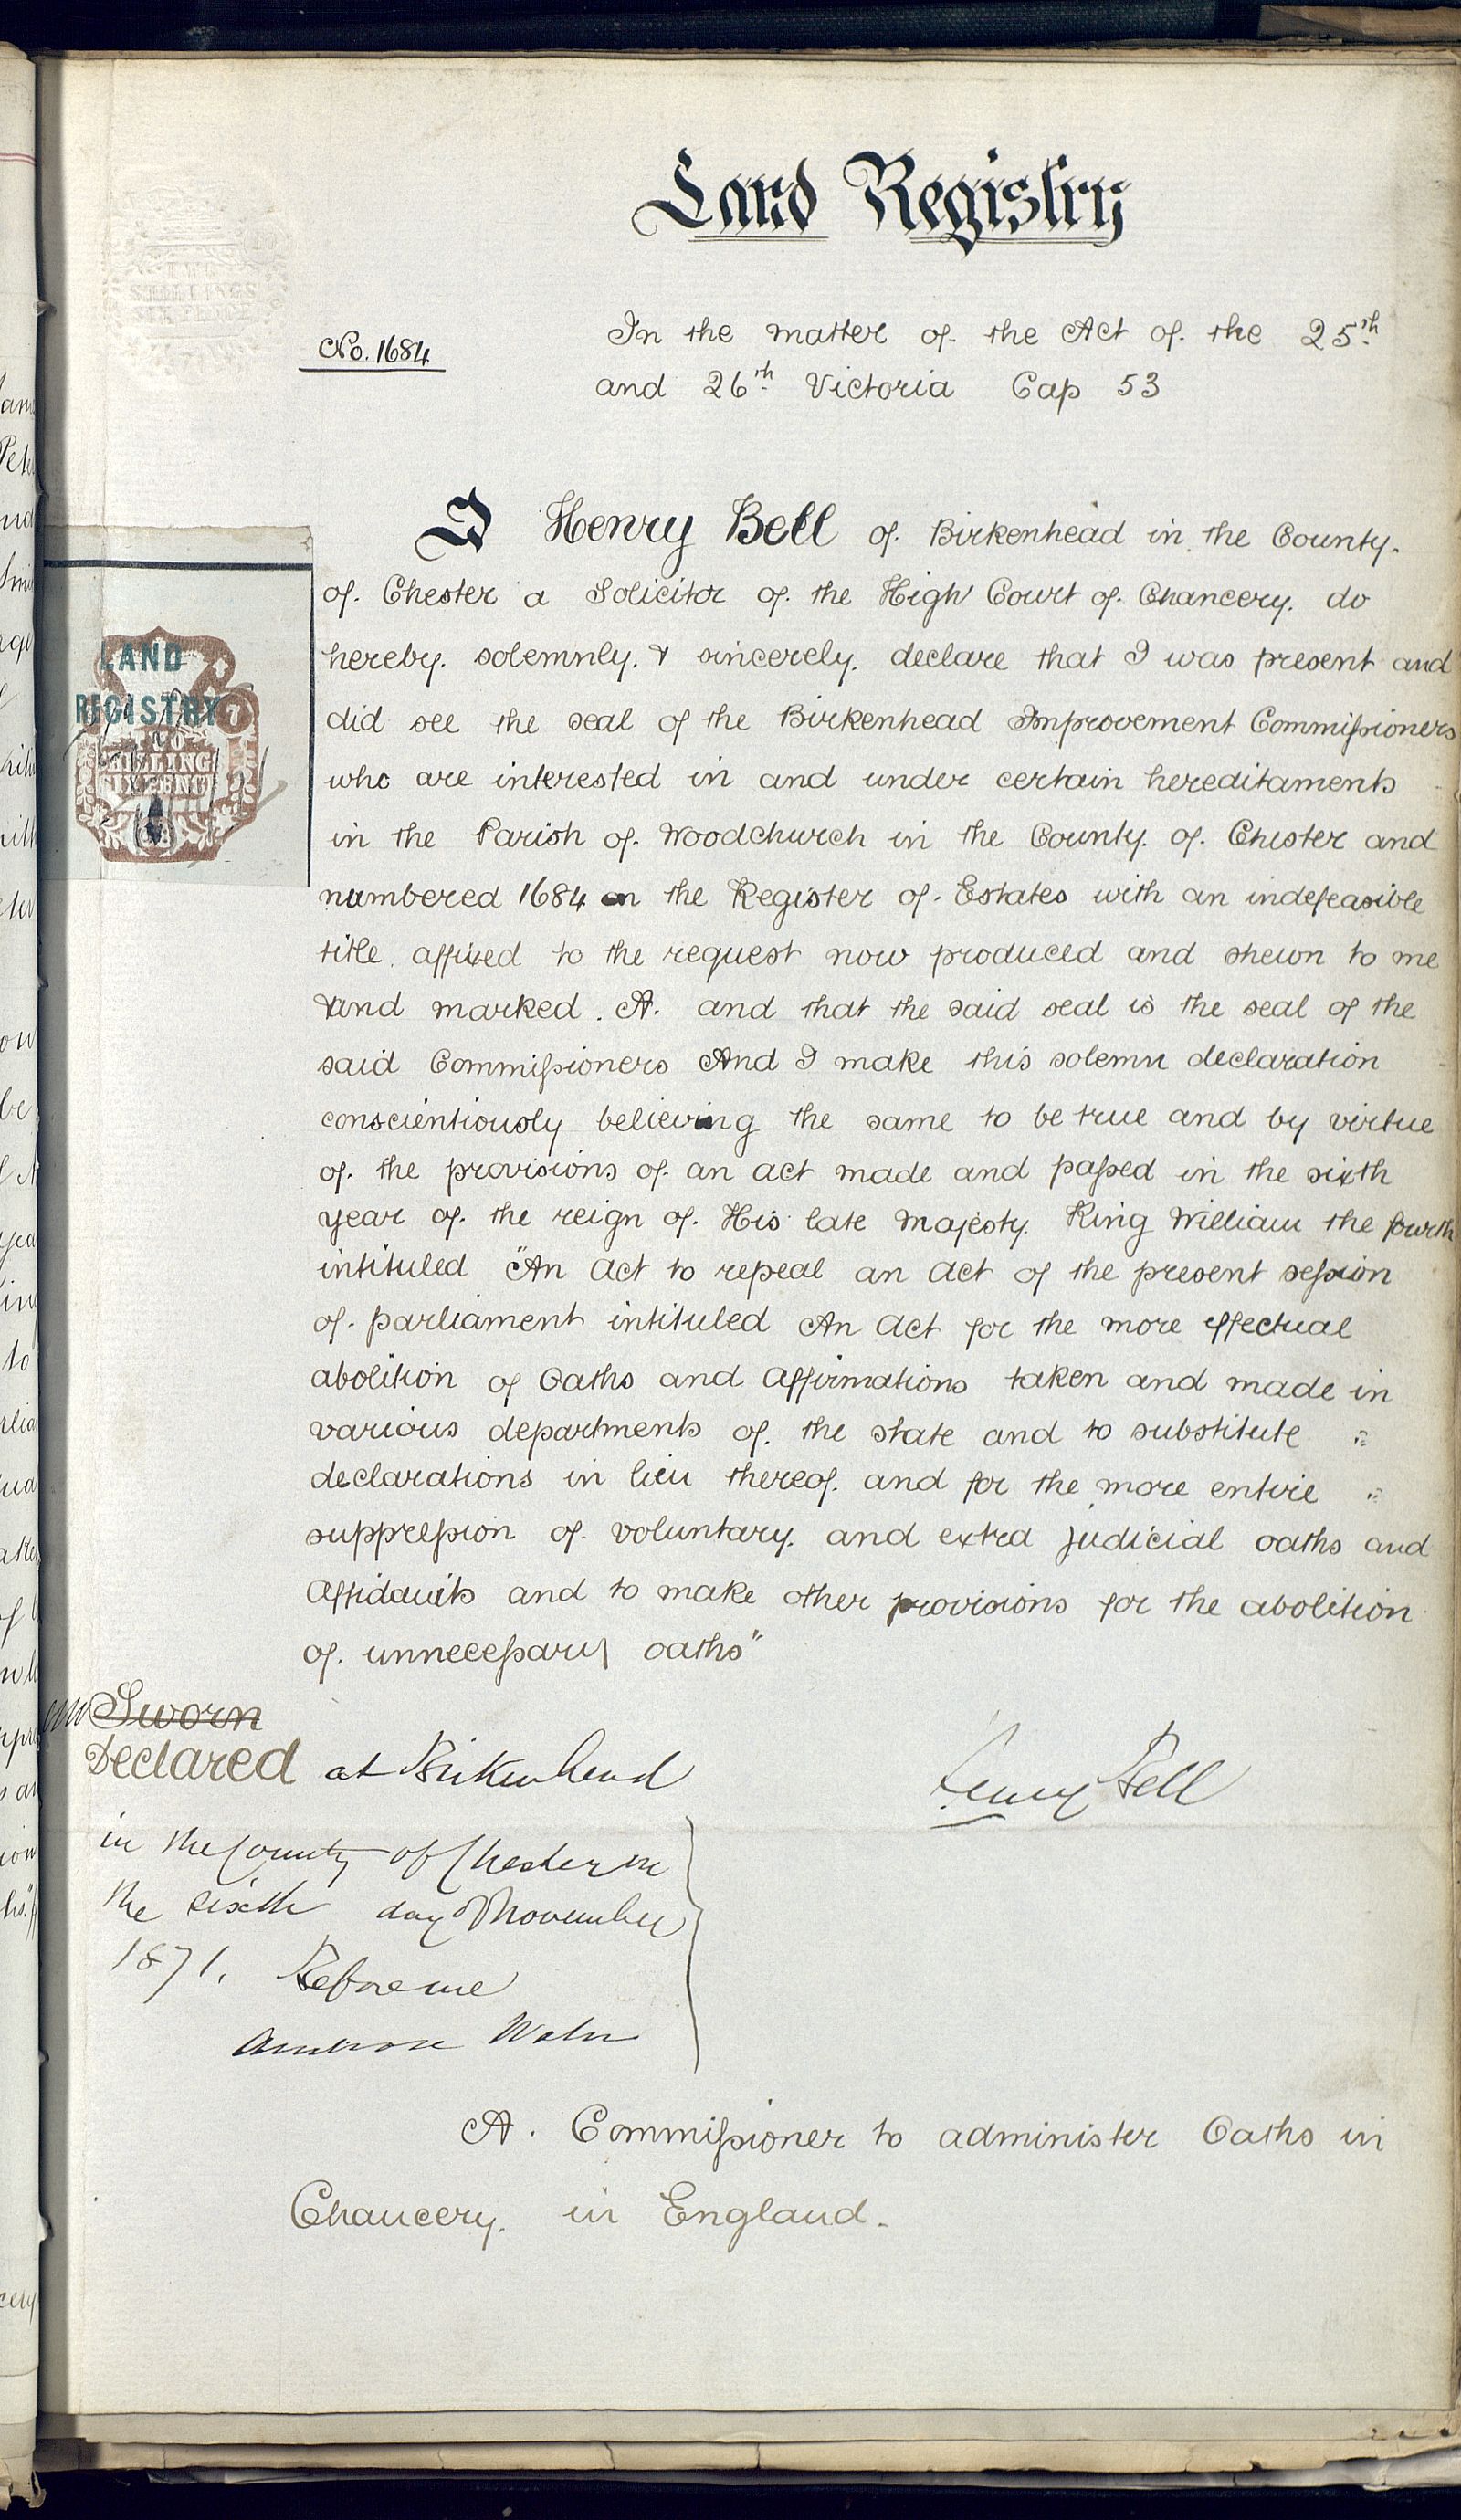 Land Registry
TWO
SHILLINGS
SIX PENCE
No. 1684
In the matter of the Act of the 25th
and 26th Victoria Cap 53
I Henry Bell of Birkenhead in the County
of Chester a Solicitor of the High Court of Chancery do
hereby solemnly & sincerely declare that I was present and
did see the seal of the Birkenhead Improvement Commissioners
who are interested in and under certain hereditaments
in the Parish of Woodchurch in the County of Chester and
numbered 1684 on the Register of Estates with an indefeasible
title affixed to the request now produced and shewn to me
and marked A. and that the said seal is the seal of the
said Commissioners And I make this solemn declaration
conscientiously believing the same to be true and by virtue
of the provisions of an act made and passed in the sixth
year of the reign of His late Majesty King William the fourth
intituled "An Act to repeal an Act of the present session
of parliament intituled An Act for the more effectual
abolition of Oaths and Affirmations taken and made in
various departments of the state and to substitute
declarations in lieu thereof and for the more entire
suppression of voluntary and extra judicial oaths and
Affidavits and to make other provisions for the abolition
of unnecessary oaths"
LAND
REGISTRY
7
TWO
SHILLING
SIXPENCE
Sworn
Declared at Birkenhead
in the County of Chester on
the sixth day of November
1871. Before me
Henry Bell
A. Commissioner to administer Oaths in
Chancery in England.